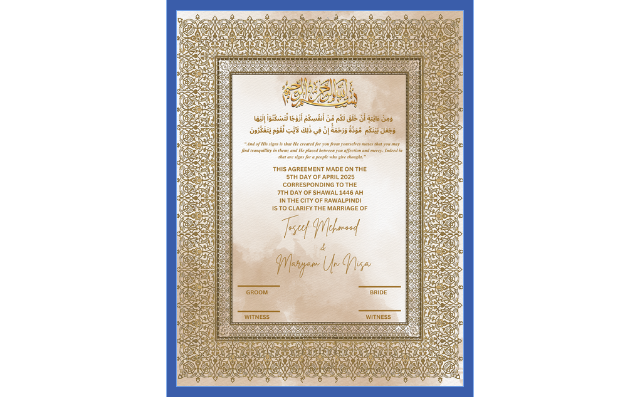 بسم الله الرحمن الرحيم
وَمِنْ ءَايَٰتِهِۦٓ أَنْ خَلَقَ لَكُم مِّنْ أَنفُسِكُمْ أَزْوَٰجًا لِّتَسْكُنُوٓا۟ إِلَيْهَا
وَجَعَلَ بَيْنَكُم مَّوَدَّةً وَرَحْمَةً إِنَّ فِى ذَٰلِكَ لَءَايَٰتٍ لِّقَوْمٍ يَتَفَكَّرُونَ
"And of His signs is that He created for you from yourselves mates that you may
find tranquility in them; and He placed between you affection and mercy. Indeed in
that are signs for a people who give thought."
THIS AGREEMENT MADE ON THE
5TH DAY OF APRIL 2025
CORRESPONDING TO THE
7TH DAY OF SHAWAL 1446 AH
IN THE CITY OF RAWALPINDI
IS TO CLARIFY THE MARRIAGE OF
Toseef Mehmood
&
Maryam Un Nisa
GROOM BRIDE
WITNESS WITNESS